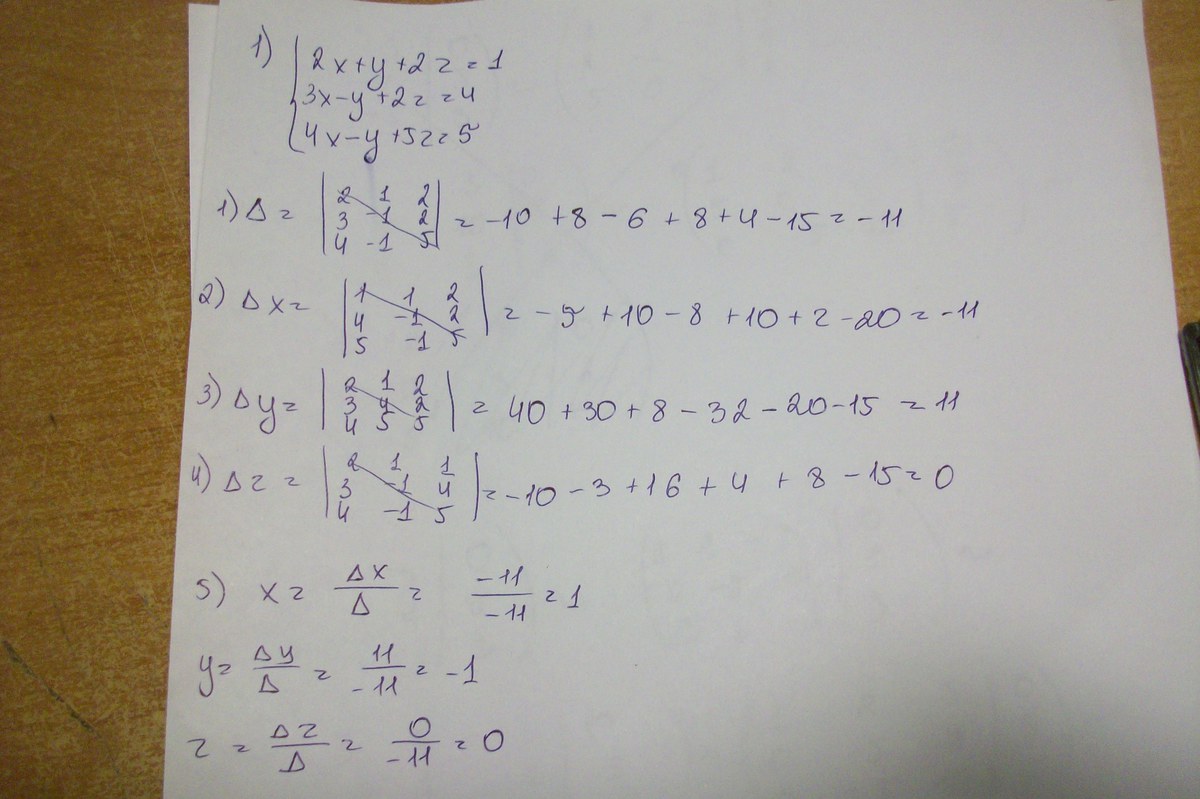 1) { 2x+y+2z=1
3x-y+2z=4
4x-y+5z=5
1) Δ = | 2 1 2
3 -1 2
4 -1 5 | = -10 +8 -6 +8+4-15 = -11
2) Δx = | 1 1 2
4 -1 2
5 -1 5 | = -5 +10-8 +10+2-20 = -11
3) Δy = | 2 1 2
3 4 2
4 5 5 | = 40+30+8-32-20-15 = 11
4) Δz = | 2 1 1
3 -1 4
4 -1 5 | = -10-3+16+4 +8-15=0
5) x = Δx/Δ = -11/-11 = 1
y = Δy/Δ = 11/-11 = -1
z = Δz/Δ = 0/-11 = 0